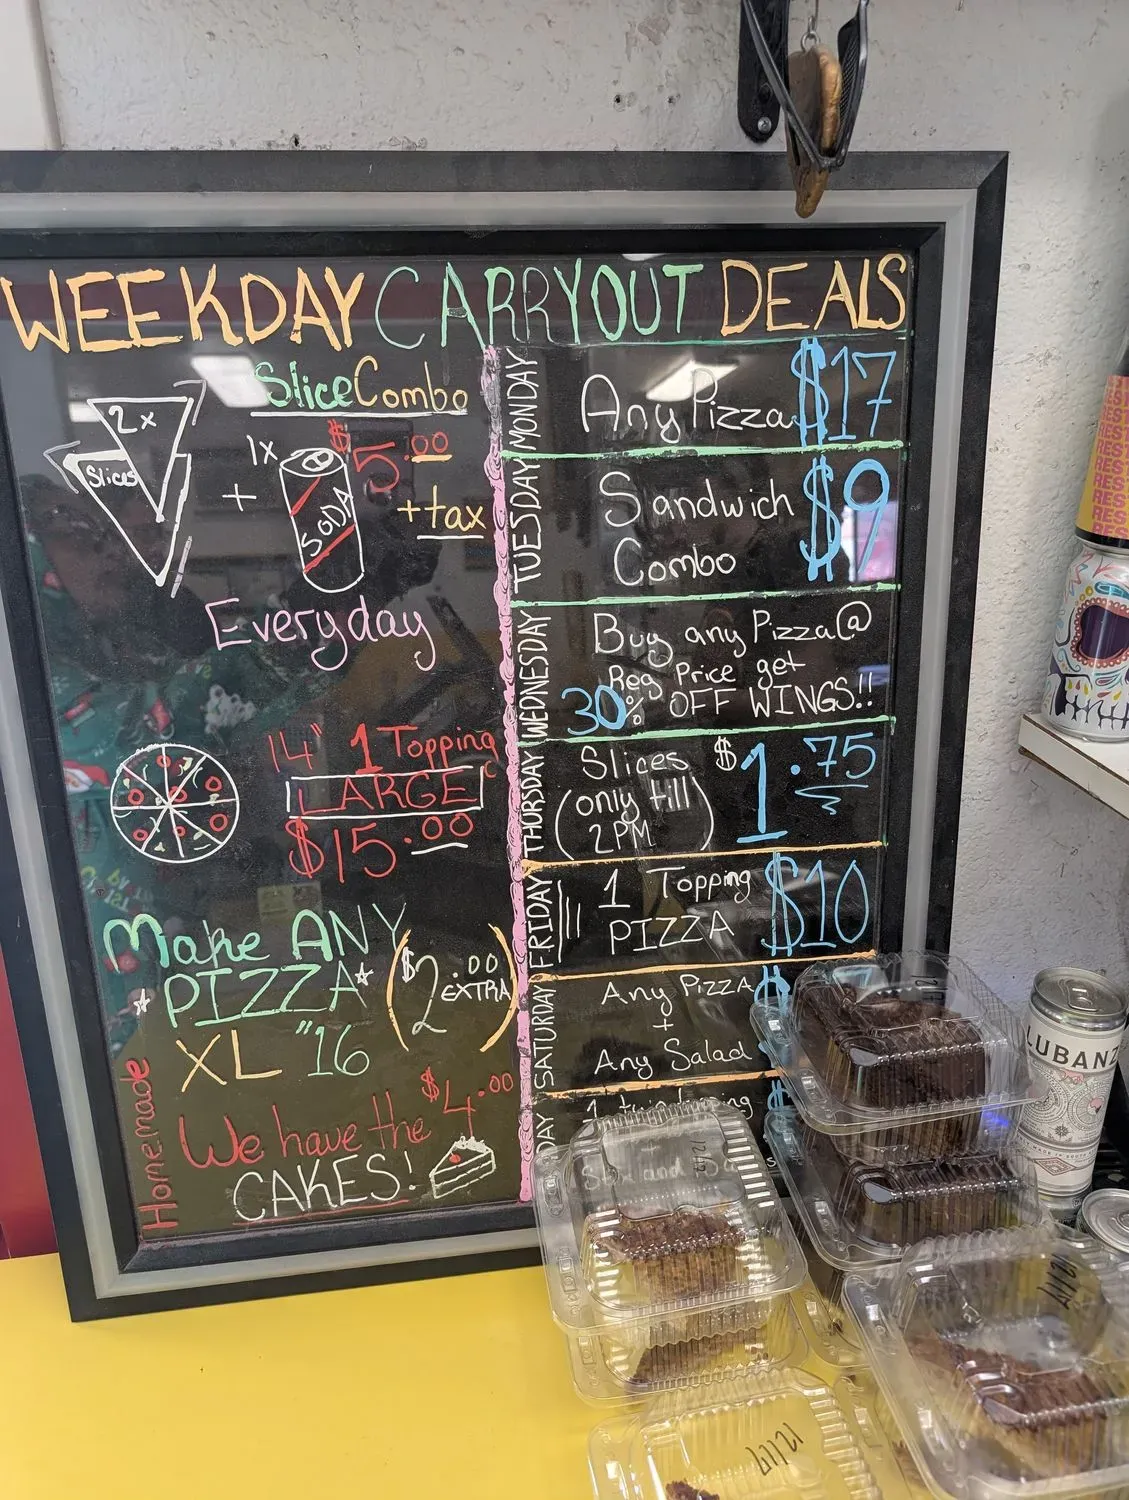 WEEKDAY CARRYOUT DEALS
Slice Combo
2x
Slices
+
1x
SODA
$5.00
+tax
Everyday
14" 1 Topping
LARGE
$15.00
Make ANY
PIZZA
XL "16
($2.00
EXTRA)
Homemade
We have the $4.00
CAKES!
MONDAY
Any Pizza $17
TUESDAY
Sandwich $9
Combo
WEDNESDAY
Buy any Pizza @
Reg Price get
30% OFF WINGS!!
THURSDAY
Slices $1.75
(only till
2 PM)
FRIDAY
1 Topping $10
PIZZA
SATURDAY
Any Pizza $
+
Any Salad
DAY
1
LUBANZ
12/17
REST
REST
REST
REST
REST
REST